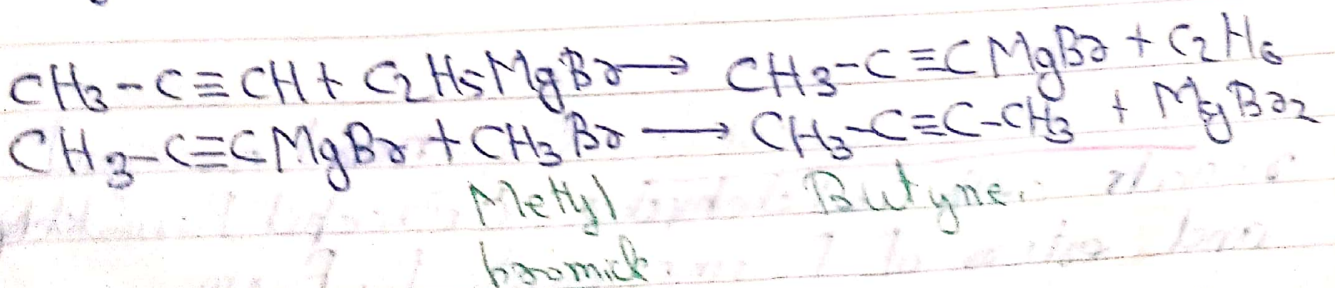 CH3-C≡CH + C2H5MgBr → CH3-C≡CMgBr + C2H6
CH3-C≡CMgBr + CH3Br → CH3-C≡C-CH3 + MgBr2
Methyl Butyne.
bromide.